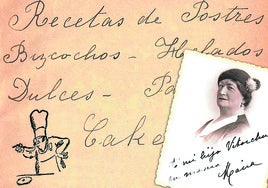 Recetas de Postres
Bizcochos - Helados
Dulces - Pa
Cake
A mi hija
su mamá
María